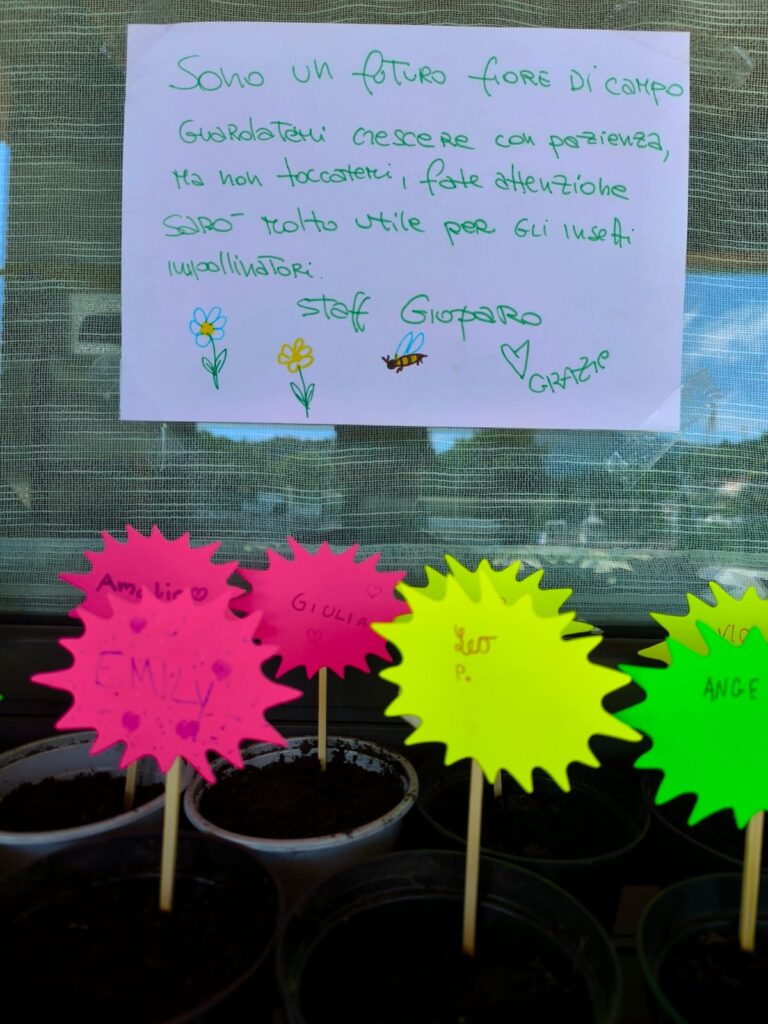 Sono un futuro fiore di campo
Guardatemi crescere con pazienza,
ma non toccatemi, fate attenzione
sarò molto utile per gli insetti
impollinatori.
Staff Gioparo
GRAZIE
Amelie
GIULIA
EMILY
Leo
P.
VIO
ANGE